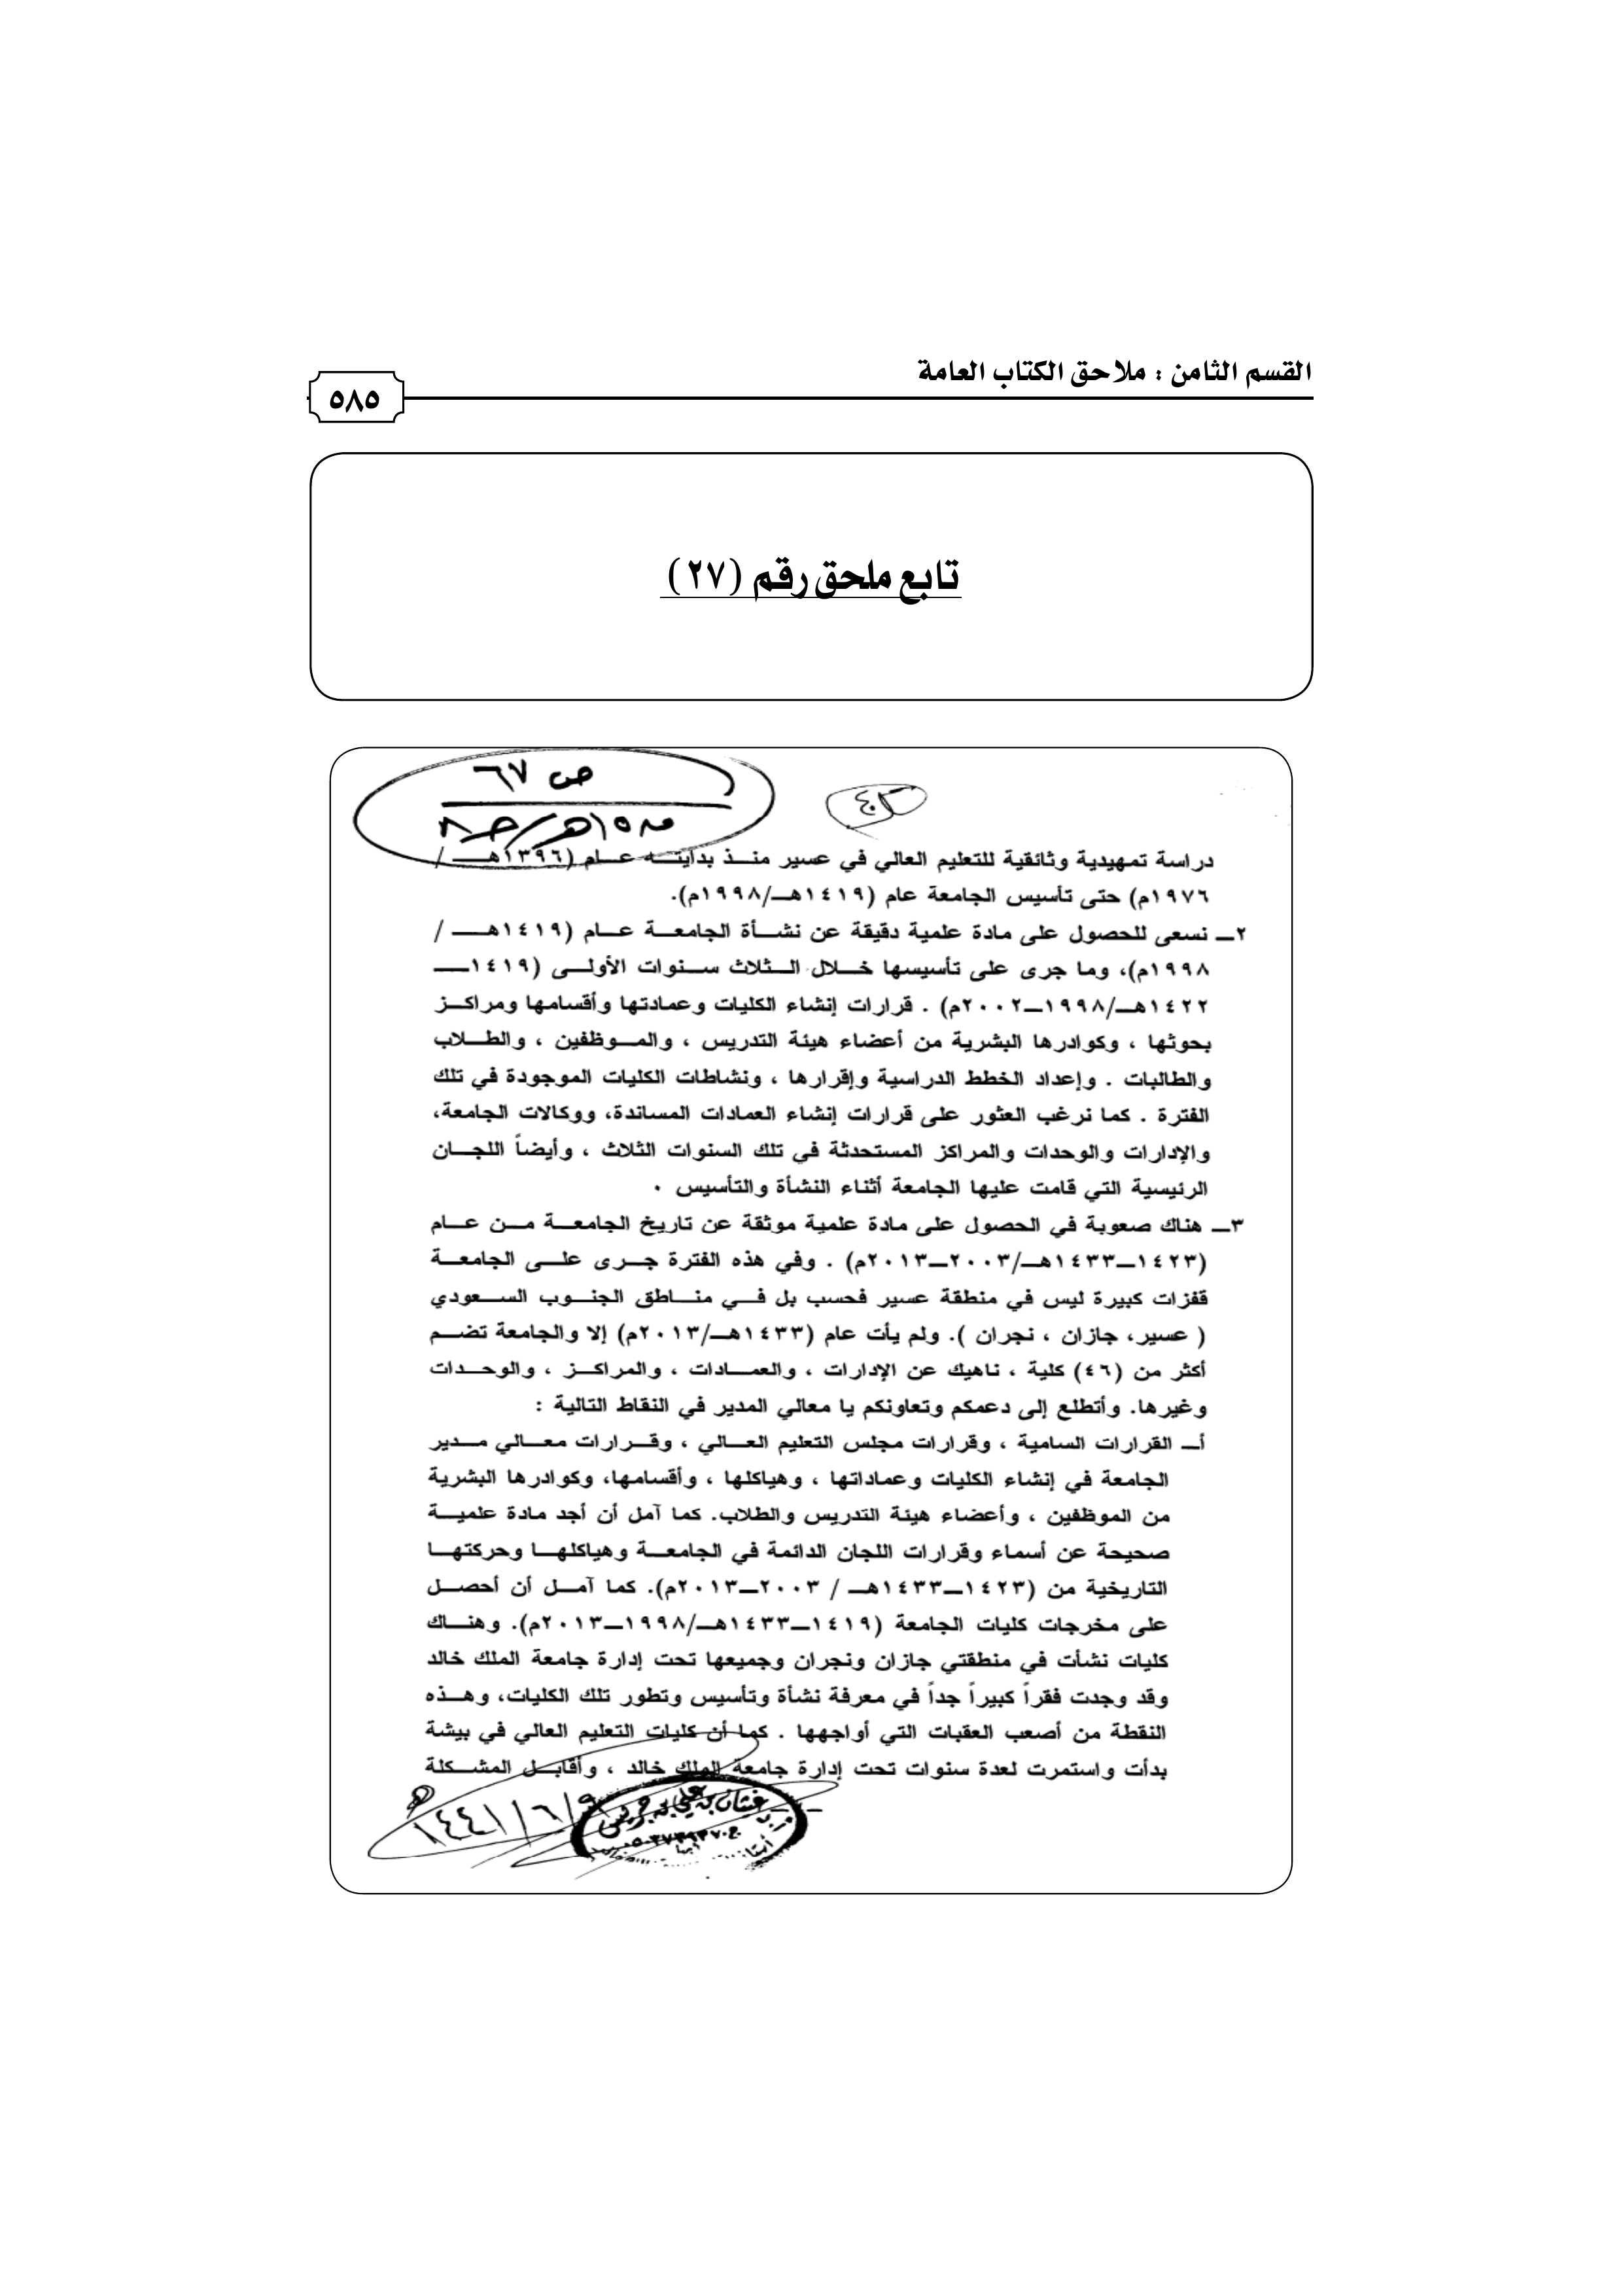 القسم الثامن : ملاحق الكتاب العامة
٥٨٥
تابع ملحق رقم (٢٧)
ص ٦٧
دراسة تمهيدية وثائقية للتعليم العالي في عسير منـــذ بدايتـــه عـــام (١٣٩٦هـــــ /
١٩٧٦م) حتى تأسيس الجامعة عام (١٤١٩هـــ/١٩٩٨م).
٢ـــ نسعى للحصول على مادة علمية دقيقة عن نشـــأة الجامعـــة عـــام (١٤١٩هـــــ /
١٩٩٨م)، وما جرى على تأسيسها خـــلال الـــثلاث ســـنوات الأولـــى (١٤١٩ـــــ
١٤٢٢هـــ/١٩٩٨ـــ٢٠٠٢م) . قرارات إنشاء الكليات وعمادتها وأقسامها ومراكـــز
بحوثها ، وكوادرها البشرية من أعضاء هيئة التدريس ، والمـــوظفين ، والطـــلاب
والطالبات . وإعداد الخطط الدراسية وإقرارها ، ونشاطات الكليات الموجودة في تلك
الفترة . كما نرغب العثور على قرارات إنشاء العمادات المساندة، ووكالات الجامعة،
والإدارات والوحدات والمراكز المستحدثة في تلك السنوات الثلاث ، وأيضاً اللجـــان
الرئيسية التي قامت عليها الجامعة أثناء النشأة والتأسيس ٠
٣ـــ هناك صعوبة في الحصول على مادة علمية موثقة عن تاريخ الجامعـــة مـــن عـــام
(١٤٢٣ـــ١٤٣٣هـــ/٢٠٠٣ـــ٢٠١٣م) . وفي هذه الفترة جـــرى علـــى الجامعـــة
قفزات كبيرة ليس في منطقة عسير فحسب بل فـــي منـــاطق الجنـــوب الســـعودي
( عسير، جازان ، نجران ). ولم يأت عام (١٤٣٣هـــ/٢٠١٣م) إلا والجامعة تضـــم
أكثر من (٤٦) كلية ، ناهيك عن الإدارات ، والعمـــادات ، والمراكـــز ، والوحـــدات
وغيرها. وأتطلع إلى دعمكم وتعاونكم يا معالي المدير في النقاط التالية :
أـــ القرارات السامية ، وقرارات مجلس التعليم العـــالي ، وقـــرارات معـــالي مـــدير
الجامعة في إنشاء الكليات وعماداتها ، وهياكلها ، وأقسامها، وكوادرها البشرية
من الموظفين ، وأعضاء هيئة التدريس والطلاب. كما آمل أن أجد مادة علميـــة
صحيحة عن أسماء وقرارات اللجان الدائمة في الجامعـــة وهياكلهـــا وحركتهـــا
التاريخية من (١٤٢٣ـــ١٤٣٣هـــ / ٢٠٠٣ـــ٢٠١٣م). كما آمـــل أن أحصـــل
على مخرجات كليات الجامعة (١٤١٩ـــ١٤٣٣هـــ/١٩٩٨ـــ٢٠١٣م). وهنـــاك
كليات نشأت في منطقتي جازان ونجران وجميعها تحت إدارة جامعة الملك خالد
وقد وجدت فقراً كبيراً جداً في معرفة نشأة وتأسيس وتطور تلك الكليات، وهـــذه
النقطة من أصعب العقبات التي أواجهها . كما أن كليات التعليم العالي في بيشة
بدأت واستمرت لعدة سنوات تحت إدارة جامعة الملك خالد ، وأقابـــل المشـــكلة
غيثان بن علي بن جريس
١٤٤١/٦/٩هـ